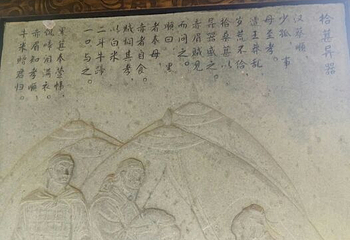 拾葚異器
漢蔡順，
少孤，事
母至孝。
遭王莽亂，
歲荒不給，
拾桑葚以
異器盛之。
赤眉賊見
而問之。
順曰：黑
者奉母，
赤者自食。
賊憫其孝，
以白米
二斗牛蹄
一只与之。
黑葚奉萱帏，
饥啼泪满衣。
赤眉知孝順，
牛米贈君歸。